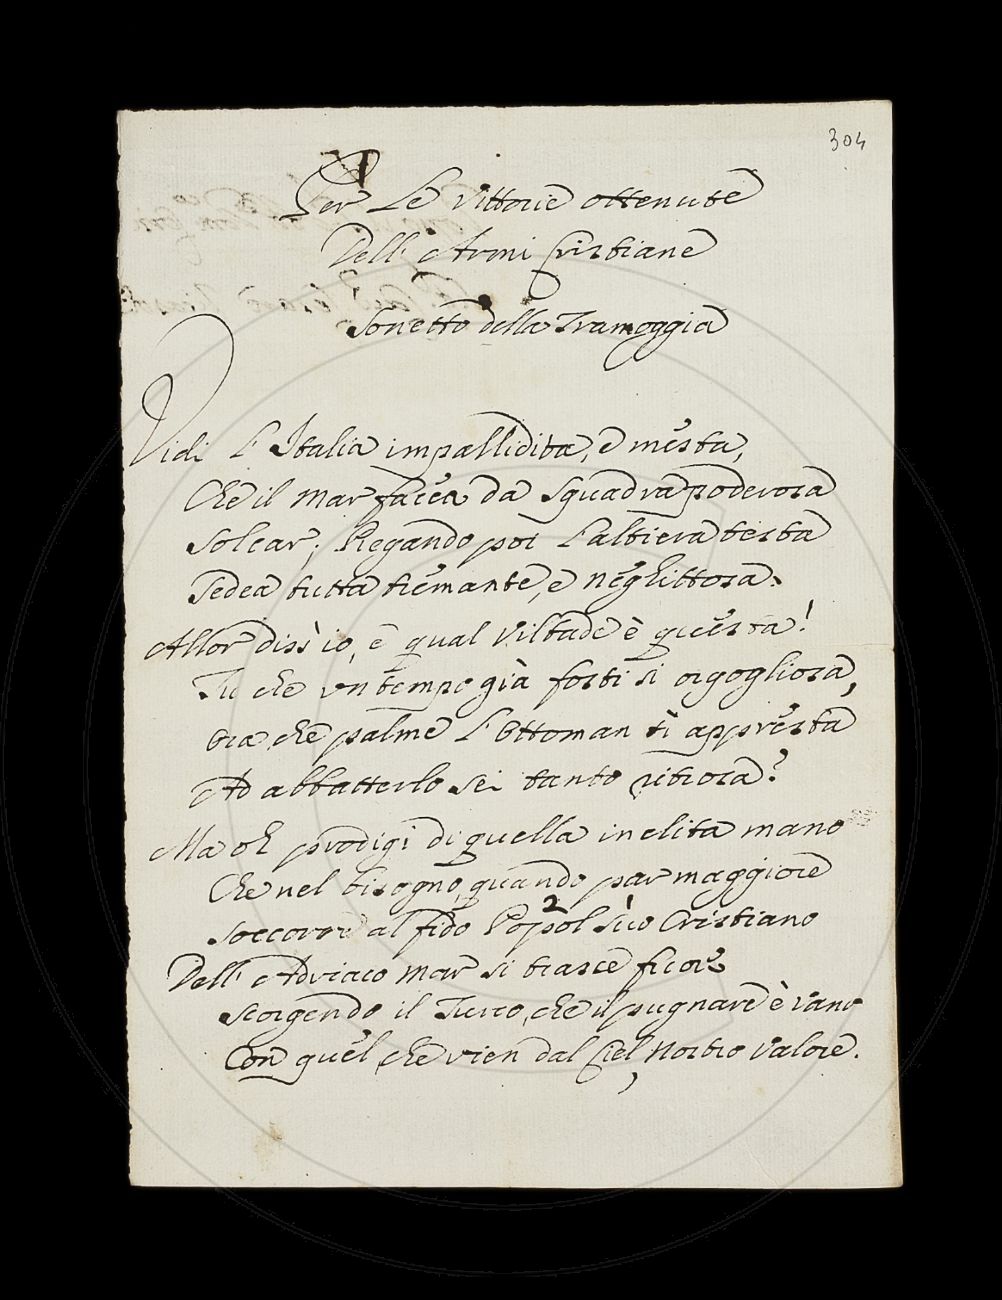 304
Per Le Vittorie ottenute
Dell' Armi Cristiane
Sonetto della Tramoggia
Vidi L'Italia impallidita, e mesta,
Che il Mar facea da Squadra poderosa
Solcar; Piegando poi L'altiera testa
Sedea tutta tremante, e neghittosa.
Allor diss' io, e qual Viltade è questa!
Tu che un tempo già fosti sì orgogliosa,
Ora, che palme L'Ottoman ti appresta
Ad abbatterlo sei tanto ritrosa?
Ma oh prodigi di quella inclita mano
Che nel bisogno, quando par maggiore
Soccorre al fido Popol suo Cristiano
Dell' Adriaco Mar si trasse fuore
Scorgendo il Turco, che il pugnare è vano
Con quel, che vien dal Ciel, Nostro Valore.